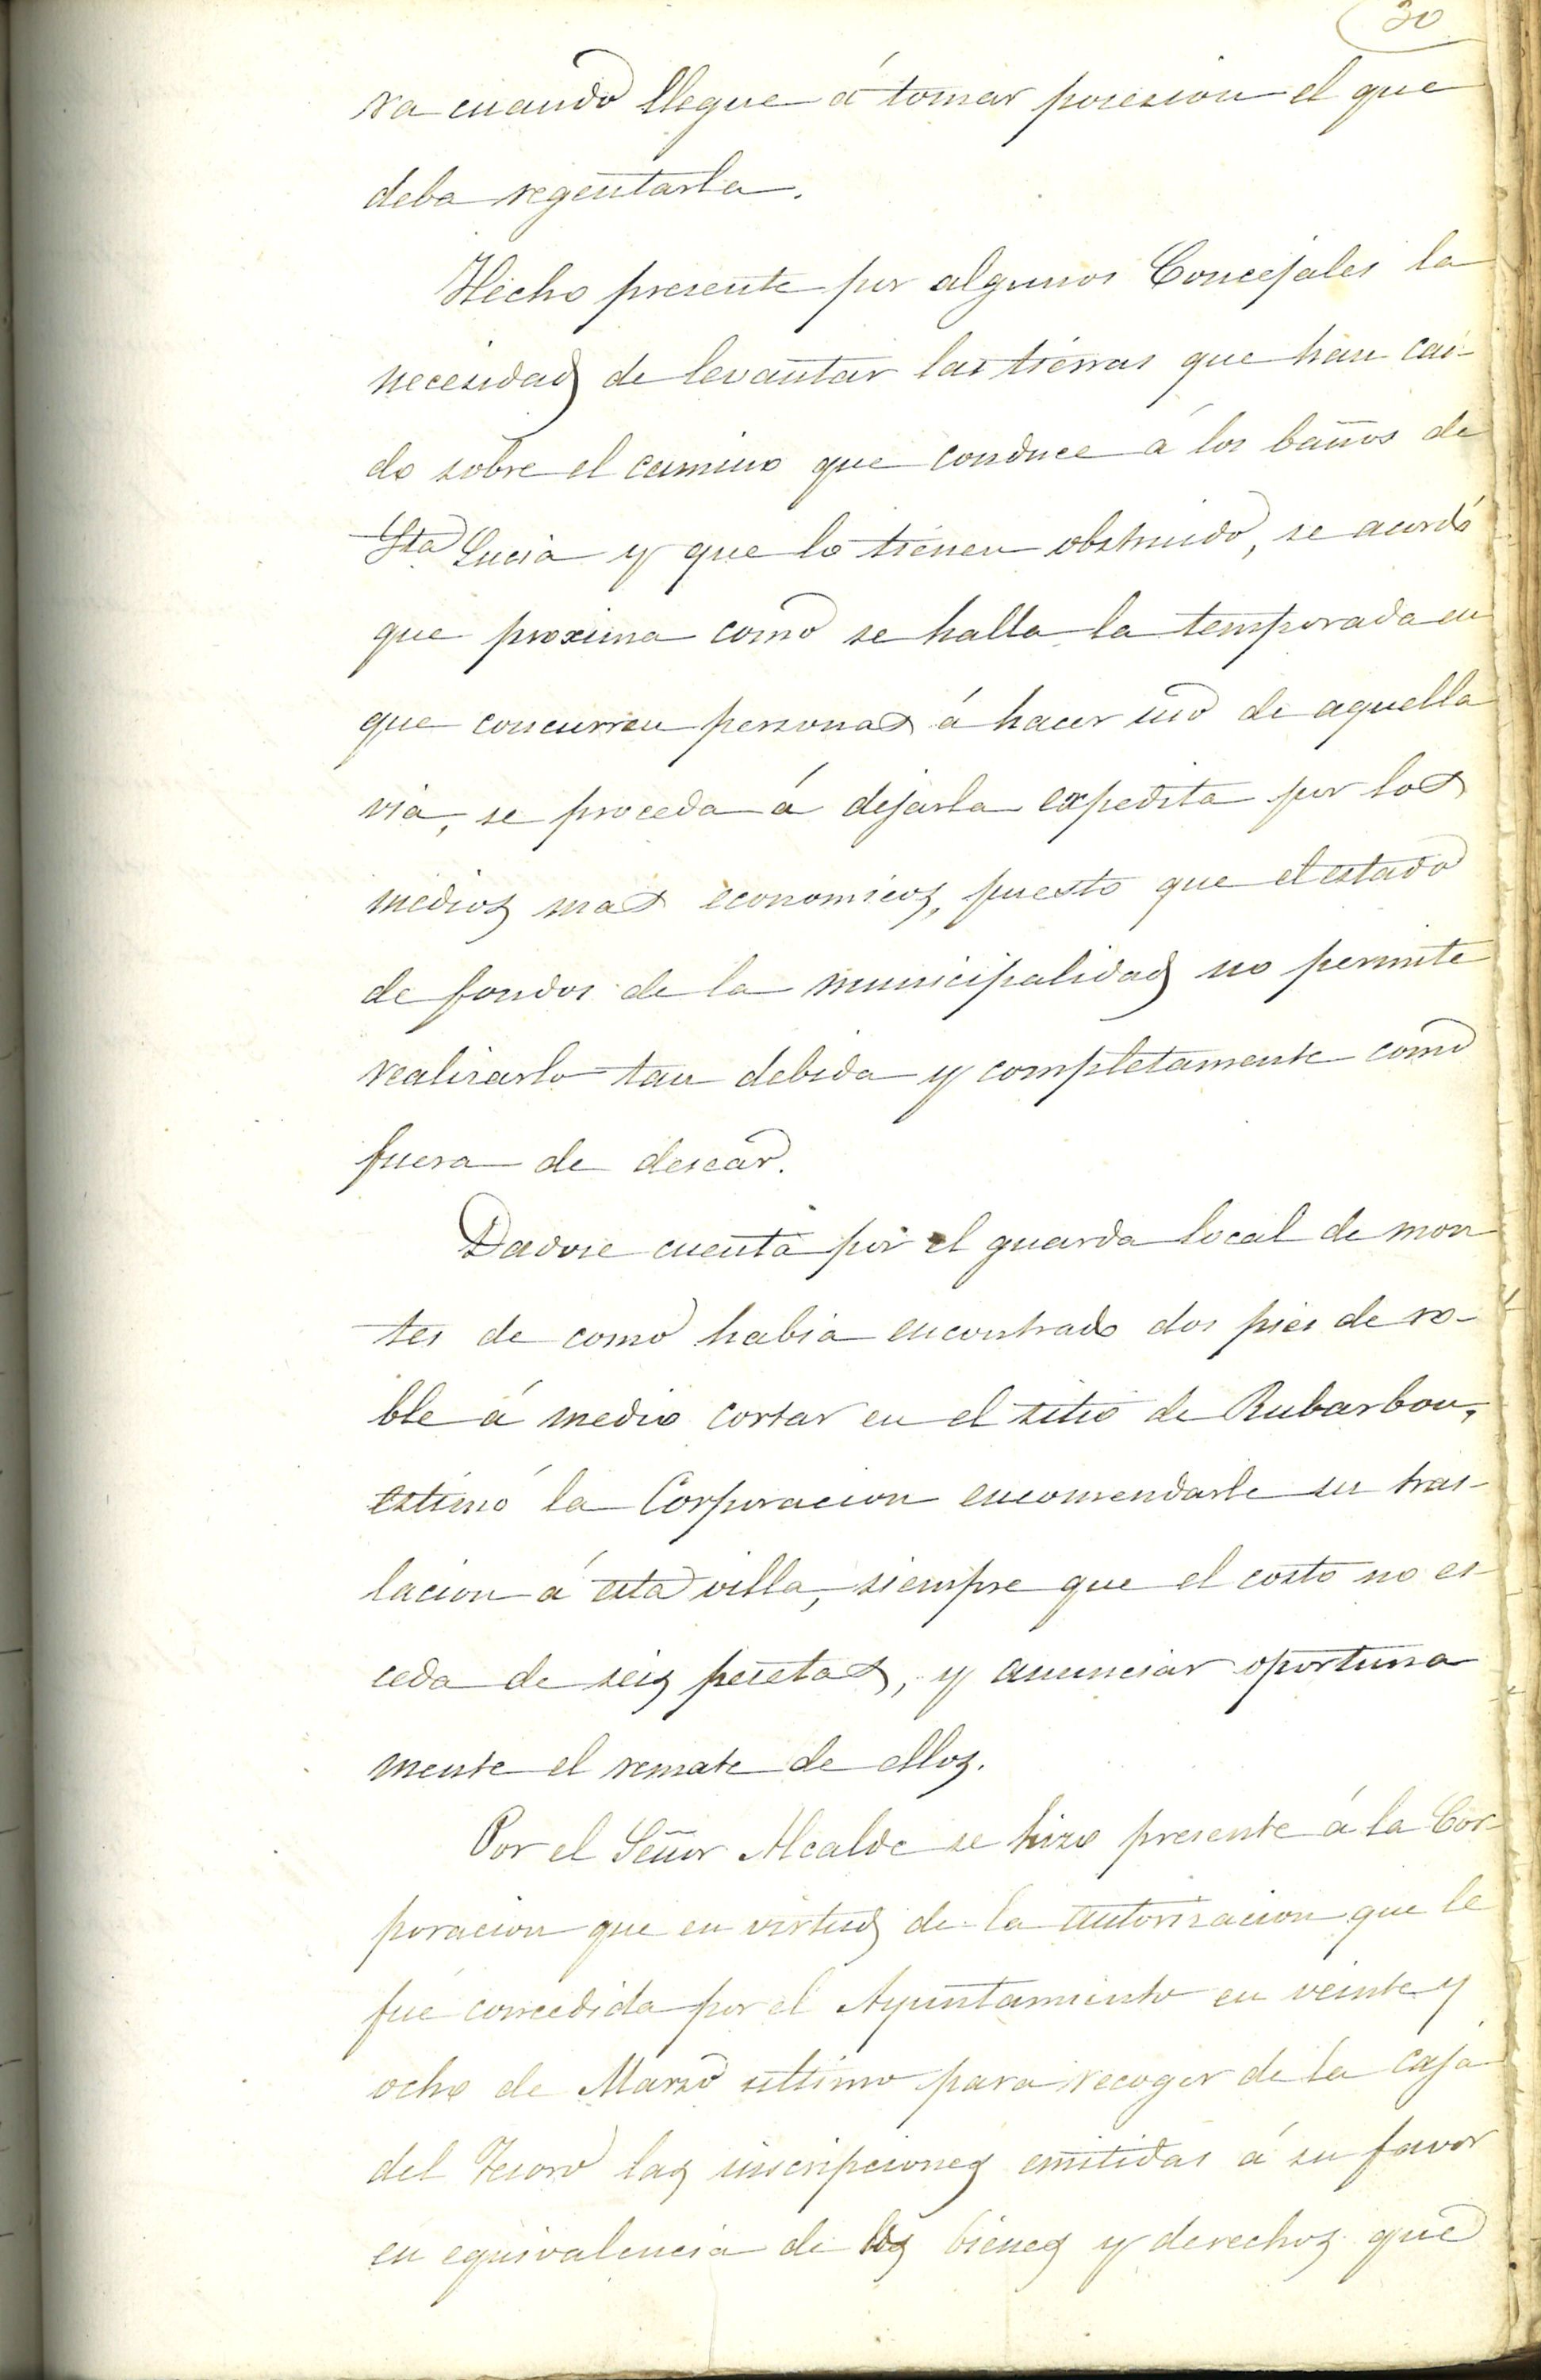 30
ra cuando llegue á tomar posesion el que
deba regentarla.
Hecho presente por algunos Concejales la
necesidad de levantar las tierras que han cai-
do sobre el camino que conduce á los baños de
Sta Lucia y que lo tienen obstruido, se acordó
que proxima como se halla la temporada en
que concurren personas á hacer uso de aquella
via, se proceda á dejarla expedita por los
medios mas economicos, puesto que el estado
de fondos de la municipalidad no permite
realizarlo tan debida y completamente como
fuera de desear.
Dadose cuenta por el guarda local de mon
tes de como habia encontrado dos pies de ro-
ble á medio cortar en el sitio de Rubarbon,
estimó la Corporacion encomendarle su tras-
lacion á esta villa, siempre que el costo no es
ceda de seis pesetas, y anunciar oportuna
mente el remate de ellos.
Por el Señor Alcalde se hizo presente á la Cor-
poracion que en virtud de la autorizacion que le
fué concedida por el Ayuntamiento en veinte y
ocho de Marzo ultimo para recoger de la Caja
del Tesoro las inscripciones emitidas á su favor
en equivalencia de los bienes y derechos que